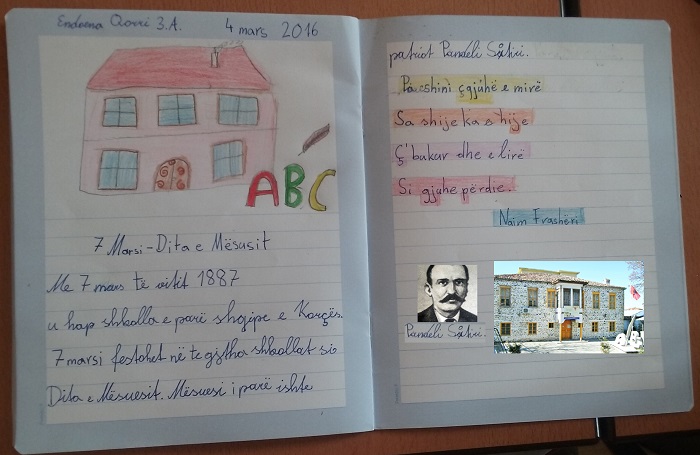 Endeena Qorri 3.A.
4 mars 2016
ABC
7 Marsi - Dita e Mësusit
Me 7 mars të vitit 1887
u hap shkolla e parë shqipe e Korçës.
7 marsi festohet në te gjtha shkollat si
Dita e Mësuesit. Mësuesi i parë ishte
patriot Pandeli Sotiri.
Pa shini çgjuhë e mirë
Sa shije ka e hije
Ç'bukur dhe e lirë
Si gjuhe përdie.
Naim Frashëri
Pandeli Sotiri.